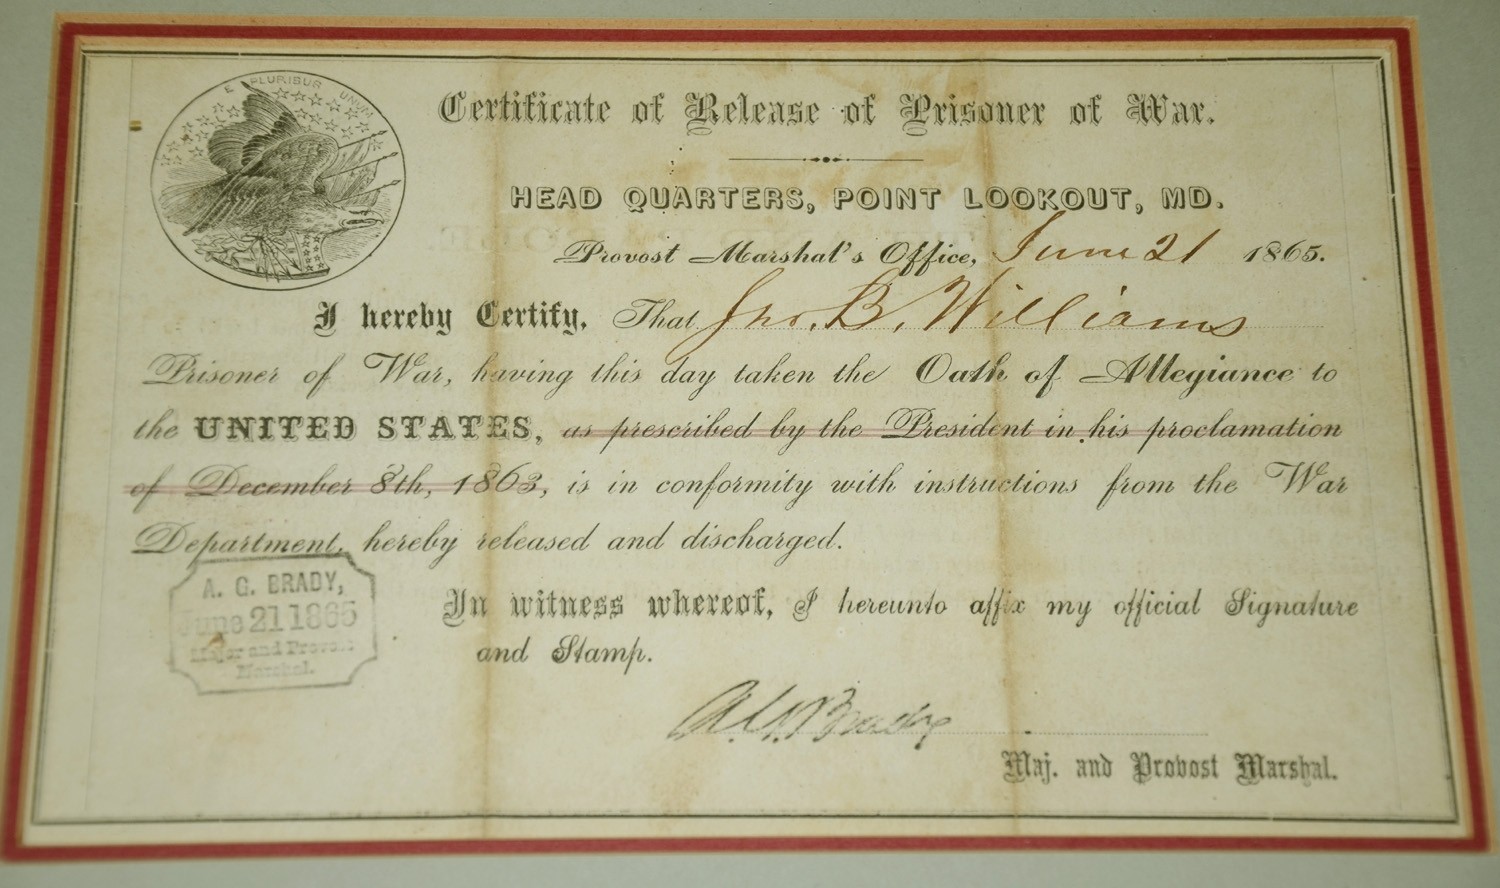 E PLURIBUS UNUM
Certificate of Release of Prisoner of War.
HEAD QUARTERS, POINT LOOKOUT, MD.
Provost Marshal's Office, June 21 1865.
I hereby Certify, That Jno. B. Williams
Prisoner of War, having this day taken the Oath of Allegiance to
the UNITED STATES, as prescribed by the President in his proclamation
of December 8th, 1863, is in conformity with instructions from the War
Department, hereby released and discharged.
A. G. BRADY,
June 21 1865
Major and Provost
Marshal.
In witness whereof, I hereunto affix my official Signature
and Stamp.
A. G. Brady
Maj. and Provost Marshal.